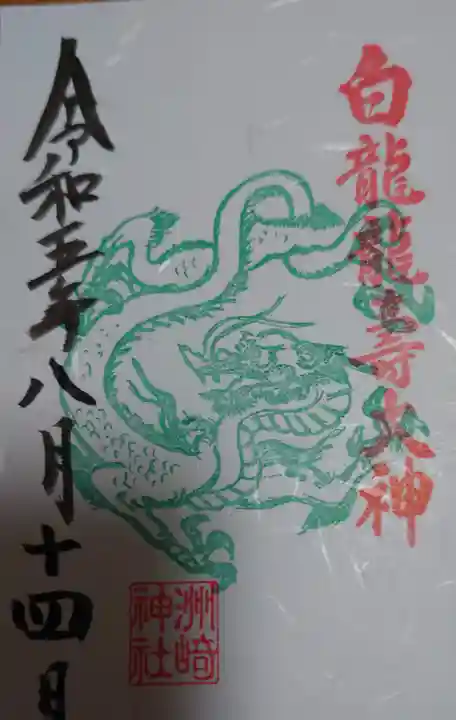 白龍龍壽大神
令和五年八月十四日
洲崎
神社